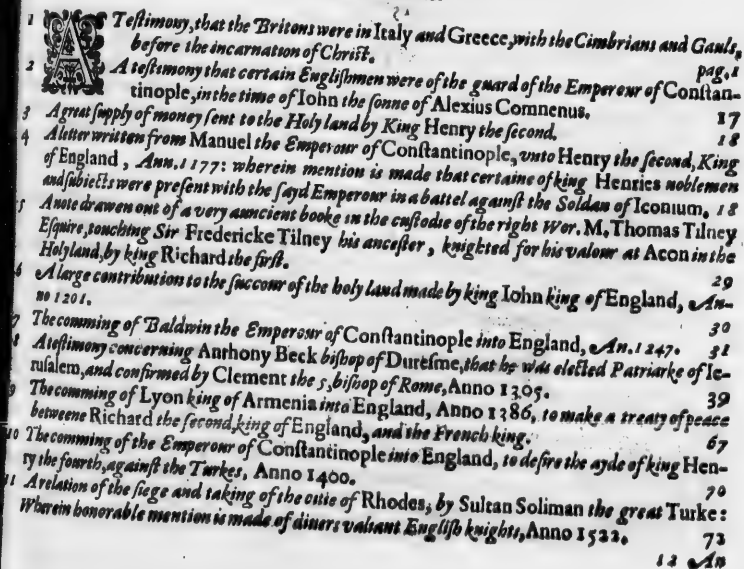 1 A Testimony, that the Britons were in Italy and Greece, with the Cimbrians and Gauls,
before the incarnation of Christ. pag.1
2 A testimony that certain Englishmen were of the guard of the Emperour of Constan-
tinople, in the time of Iohn the sonne of Alexius Comnenus. 17
3 A great supply of money sent to the Holy land by King Henry the second. 18
4 A letter written from Manuel the Emperour of Constantinople, vnto Henry the second, King
of England, Ann. 1177: wherein mention is made that certaine of king Henries noblemen
and subiects were present with the sayd Emperour in a battel against the Soldan of Iconium. 18
5 A note drawen out of a very auncient booke in the custodie of the right Wor. M. Thomas Tilney
Esquire, touching Sir Fredericke Tilney his ancester, knighted for his valour at Acon in the
Holyland, by king Richard the first. 29
6 A large contribution to the succour of the holy land made by king Iohn king of England, An-
no 1201. 30
7 The comming of Baldwin the Emperour of Constantinople into England, An. 1247. 31
8 A testimony concerning Anthony Beck bishop of Duresme, that he was elected Patriarke of Ie-
rusalem, and confirmed by Clement the 5, bishop of Rome, Anno 1305. 39
9 The comming of Lyon king of Armenia into England, Anno 1386, to make a treaty of peace
betweene Richard the second, king of England, and the French king. 67
10 The comming of the Emperour of Constantinople into England, to desire the ayde of king Hen-
ry the fourth, against the Turkes, Anno 1400. 70
11 A relation of the siege and taking of the citie of Rhodes, by Sultan Soliman the great Turke:
Wherein honorable mention is made of diuers valiant English knights, Anno 1522. 72
12 An